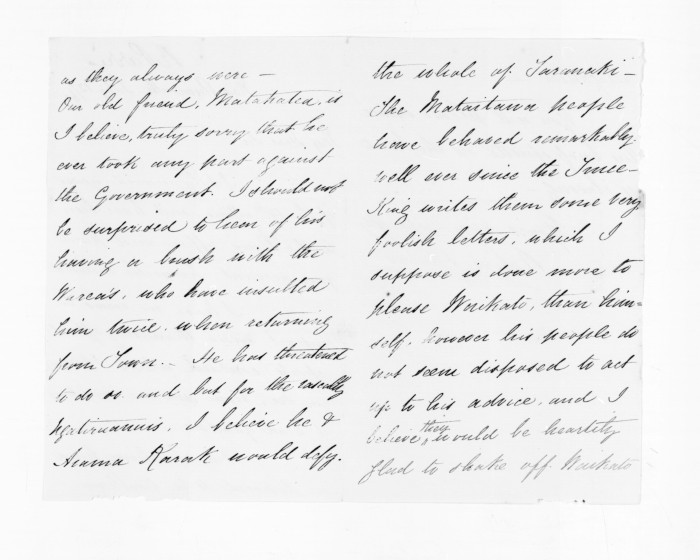 as they always were —
Our old friend, Matakatea, is
I believe, truly sorry that he
ever took any part against
the Government. I should not
be surprised to hear of his
having a brush with the
Warea's, who have insulted
him twice, when returning
from Town. — He has threatened
to do so and but for the rascally
Ngatiruanuis, I believe he &
Arama Karak would defy.
the whole of Taranaki —
The Mataitawa people
have behaved remarkably
well ever since the Truce —
King writes them some very
foolish letters, which I
suppose is done more to
please Waikato, than him=
self, however his people do
not seem disposed to act
up to his advice, and I
believe they would be heartily
glad to shake off Waikato